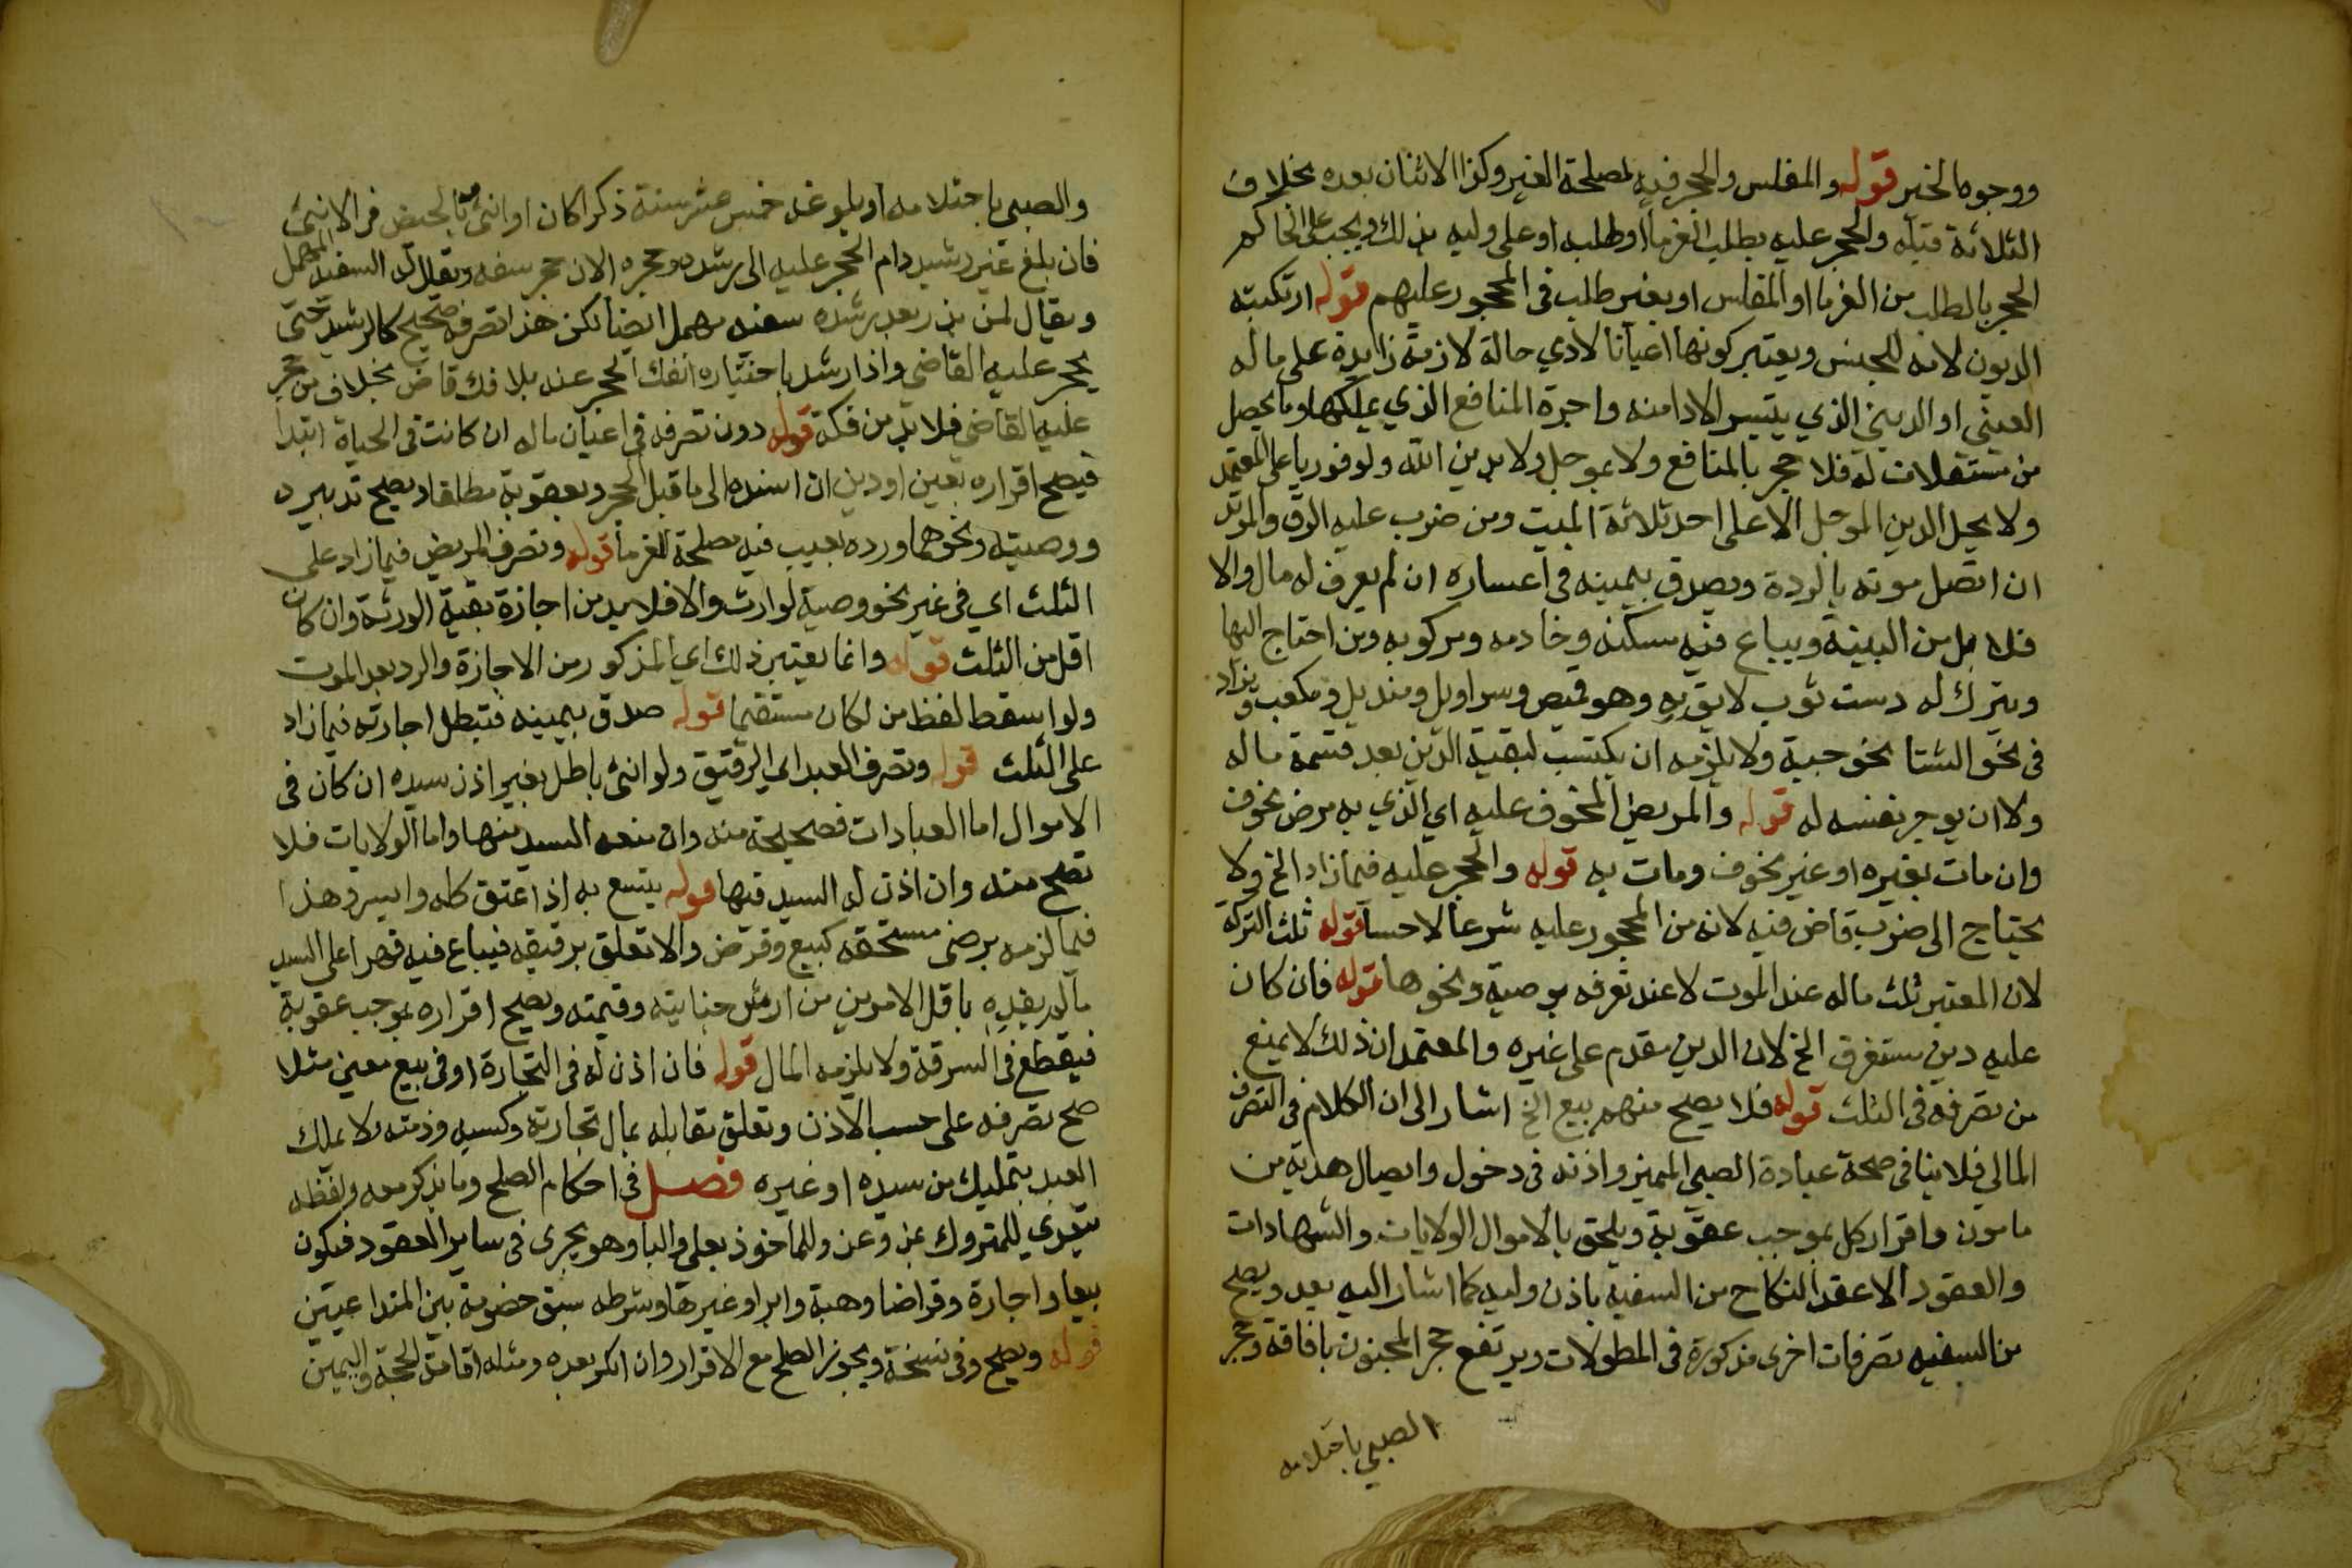 ووجوه الخير قوله والمفلس والحجر فيه لمصلحة الغير وكذا الاثنان بعده بخلاف
الثلاثة قبله والحجر عليه بطلب الغرما او طلبه او على وليه بذلك ويجب على الحاكم
الحجر بالطلب من الغرما او المفلس او بغير طلب في المحجور عليهم قوله ارتكبته
الديون لانه للجنس ويعتبر كونها اعيانا لادي حالة لازمة زايدة على ماله
العيني او الديني الذي يتيسر الادا منه واجرة المنافع الذي يملكها وما يحصل
من مستغلات له فلا حجر بالمنافع ولا بموجل ولا بدين الله ولو فوريا على المعتمد
ولا يحل الدين الموجل الا على احد ثلاثة الميت ومن ضرب عليه الرق والمرتد
ان اتصل موته بالردة ويصدق بيمينه في اعساره ان لم يعرف له مال والا
فلا بد من البينة ويباع فيه مسكنه وخادمه ومركوبه ومن احتاج اليها
ويترك له دست ثوب لايق به وهو قميص وسراويل ومنديل ومكعب ويزاد
في نحو الشتا نحو جبة ولا يلزمه ان يكتسب لبقية الدين بعد قسمة ماله
ولا ان يوجر نفسه له قوله والمريض المخوف عليه اي الذي به مرض مخوف
وان مات بغيره او غير مخوف ومات به قوله والحجر عليه فيما زاد الخ ولا
يحتاج الى ضرب قاض فيه لانه من المحجور عليه شرعا لا حسا قوله ثلث التركة
لان المعتبر ثلث ماله عند الموت لا عند تصرفه بوصية ونحوها قوله فان كان
عليه دين مستغرق الخ لان الدين مقدم على غيره والمعتمد ان ذلك لا يمنع
من تصرفه في الثلث قوله فلا يصح منهم بيع الخ اشار الى ان الكلام في التصرف
المالي فلا ينافي صحة عبادة الصبي المميز واذنه في دخول وايصال هدية من
مامون واقرار كل بموجب عقوبة ويلحق بالاموال الولايات والشهادات
والعقود الا عقد النكاح من السفيه باذن وليه كما اشار اليه بعد ويصح
من السفيه تصرفات اخرى مذكورة في المطولات ويرتفع حجر المجنون بافاقة وحجر
الصبي باحتلامه
والصبي باحتلامه او بلوغه خمس عشر سنة ذكرا كان او انثى وبالحيض في الانثى
فان بلغ غير رشيد دام الحجر عليه الى رشده وحجره الان حجر سفه ويقال له السفيه المهمل
ويقال لمن بذر بعد رشده سفيه مهمل ايضا لكن هذا تصرفه صحيح كالرشيد حتى
يحجر عليه القاضي واذا رشد باختياره انفك الحجر عنه بلا فك قاض بخلاف من حجر
عليه القاضي فلا بد من فكه قوله دون تصرفه في اعيان ماله ان كانت في الحياة ابتدا
فيصح اقراره بعين او دين ان اسنده الى ما قبل الحجر وبعقوبة مطلقا ويصح تدبيره
ووصيته ونحوهما ورده بعيب فيه مصلحة للغرما قوله وتصرف المريض فيما زاد على
الثلث اي في غير نحو وصية لوارث والا فلا بد من اجازة بقية الورثة وان كان
اقل من الثلث قوله وانما يعتبر ذلك اي المذكور من الاجازة والرد بعد الموت
ولو اسقط لفظ من لكان مستقيما قوله صدق بيمينه فتبطل اجازته فيما زاد
على الثلث قوله وتصرف العبد اي الرقيق ولو انثى باطل بغير اذن سيده ان كان في
الاموال اما العبادات فصحيحة منه وان منعه السيد منها واما الولايات فلا
تصح منه وان اذن له السيد فيها قوله يتبع به اذا عتق كله وايسر وهذا
فيما لزمه برضى مستحقه كبيع وقرض والا تعلق برقبته فيباع فيه قهرا على السيد
ما لم يفده باقل الامرين من ارش جنايته وقيمته ويصح اقراره بموجب عقوبة
فيقطع في السرقة ولا يلزمه المال قوله فان اذن له في التجارة او في بيع معين مثلا
صح تصرفه على حسب الاذن وتعلق مقابله بمال تجارته وكسبه وذمته ولا يملك
العبد بتمليك من سيده او غيره فصل في احكام الصلح وما يذكر معه ولفظه
يتعدى للمتروك بمن وعن وللماخوذ بعلى والبا وهو يجري في ساير العقود فيكون
بيعا واجارة وقراضا وهبة وابرا وغيرها وشرطه سبق خصومة بين المتداعيين
قوله ويصح وفي نسخة ويجوز الصلح مع الاقرار وان انكر بعده ومثله اقامة الحجة واليمين